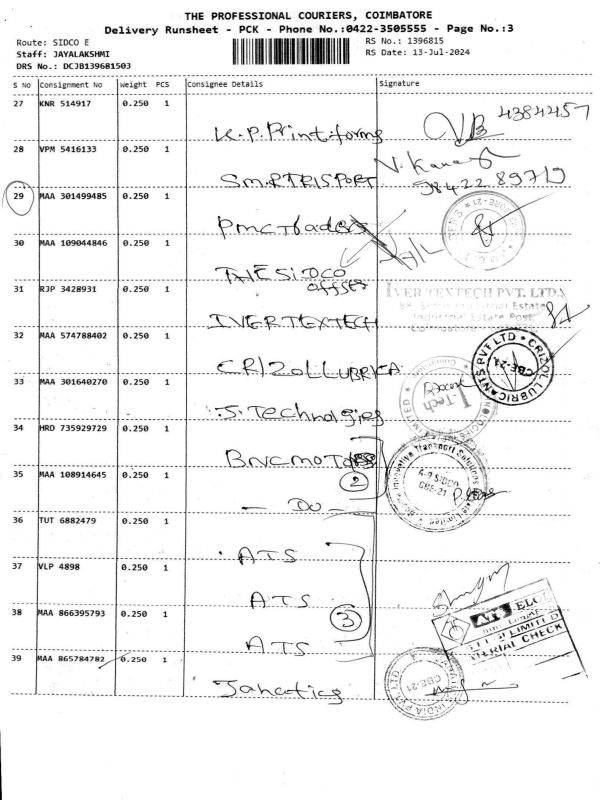 THE PROFESSIONAL COURIERS, COIMBATORE
Delivery Runsheet - PCK - Phone No.:0422-3505555 - Page No.:3
Route: SIDCO E
RS No.: 1396815
Staff: JAYALAKSHMI
RS Date: 13-Jul-2024
DRS No.: DCJB139681503
S No Consignment No Weight PCS Consignee Details Signature
27 KNR 514917 0.250 1
K.P. Printforms VB 4384457
28 VPM 5416133 0.250 1
SMARTRISPORT 98422 89719
29 MAA 301499485 0.250 1
PMC Traders
30 MAA 109044846 0.250 1
THE SIDCO
offset
31 RJP 3428931 0.250 1
IVERTEXTECH
IVER TEXTECH PVT. LTD.
Industrial Estate Post
32 MAA 574788402 0.250 1
CRIZOL LUBRICA
CRIZOL LUBRICANTS PVT LTD
CBE-21
33 MAA 301640270 0.250 1
J. Technologies
I-Tech
34 HRD 735929729 0.250 1
BNC MOTORS
2
Innovative Transport Solutions
A-9 SIDCO
CBE-21
35 MAA 108914645 0.250 1
- DO -
36 TUT 6882479 0.250 1
ATS
37 VLP 4898 0.250 1
ATS
3
38 MAA 866395793 0.250 1
ATS
ATS ELGI
LIMITED
MATERIAL CHECK
39 MAA 865784782 0.250 1
Janatics
INDIA PVT LTD
CBE-21